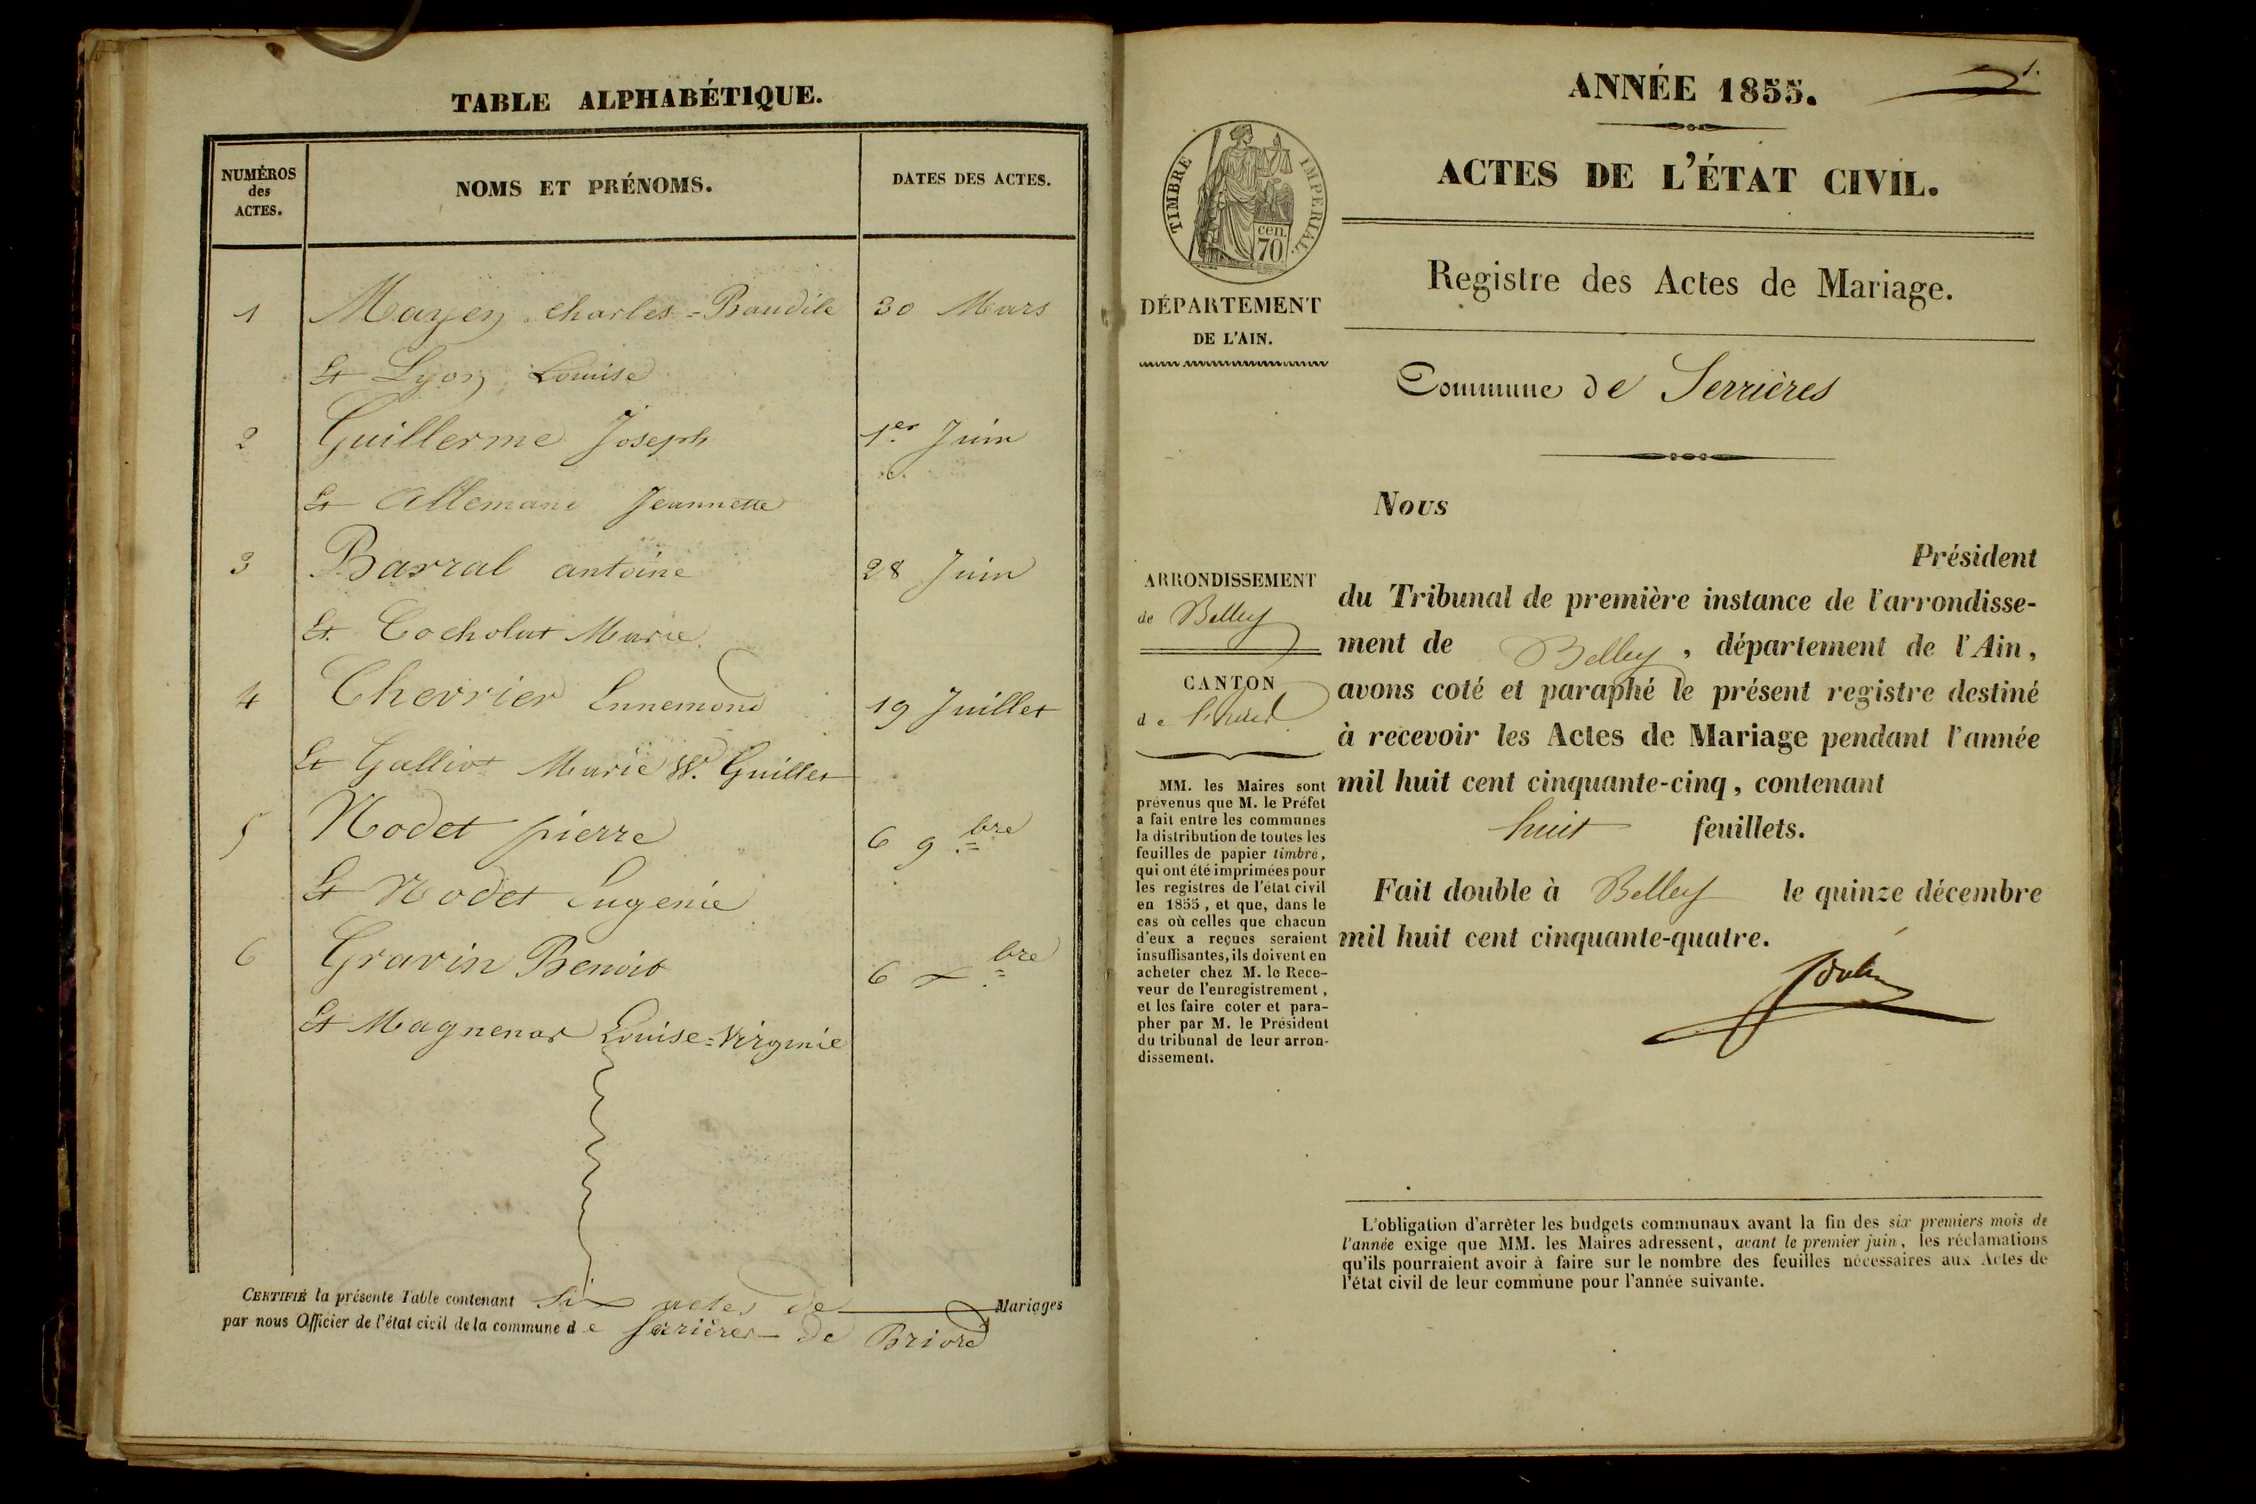 TABLE ALPHABÉTIQUE.
NUMÉROS
des
ACTES.
NOMS ET PRÉNOMS.
DATES DES ACTES.
1 Mayen Charles=Baudile 30 Mars
Et Lyon Louise
2 Guillerme Joseph 1er Juin
Et Allemand Jeannette
3 Barral antoine 28 Juin
Et Cocholat Marie
4 Chevrier Ennemond 19 Juillet
Et Galliot Marie Guillet
5 Nodet pierre 6 9bre
Et Nodet Eugenie
6 Gravin Benoit 6 xbre
Et Magnenot Louise=Virginie
CERTIFIÉ la présente Table contenant Six actes de Mariages
par nous Officier de l'état civil de la commune de Serrières de Briord
1.
ANNÉE 1855.
ACTES DE L'ÉTAT CIVIL.
TIMBRE IMPERIAL.
cen.
70
Registre des Actes de Mariage.
DÉPARTEMENT
DE L'AIN.
Commune de Serrières
Nous
Président
ARRONDISSEMENT
de Belley
CANTON
de
MM. les Maires sont
prévenus que M. le Préfet
a fait entre les communes
la distribution de toutes les
feuilles de papier timbré,
qui ont été imprimées pour
les registres de l'état civil
en 1855, et que, dans le
cas où celles que chacun
d'eux a reçues seraient
insuffisantes, ils doivent en
acheter chez M. le Rece-
veur de l'enregistrement,
et les faire coter et para-
pher par M. le Président
du tribunal de leur arron-
dissement.
du Tribunal de première instance de l'arrondisse-
ment de Belley, département de l'Ain,
avons coté et paraphé le présent registre destiné
à recevoir les Actes de Mariage pendant l'année
mil huit cent cinquante-cinq, contenant
huit feuillets.
Fait double à Belley le quinze décembre
mil huit cent cinquante-quatre.
L'obligation d'arrêter les budgets communaux avant la fin des six premiers mois de
l'année exige que MM. les Maires adressent, avant le premier juin, les réclamations
qu'ils pourraient avoir à faire sur le nombre des feuilles nécessaires aux Actes de
l'état civil de leur commune pour l'année suivante.